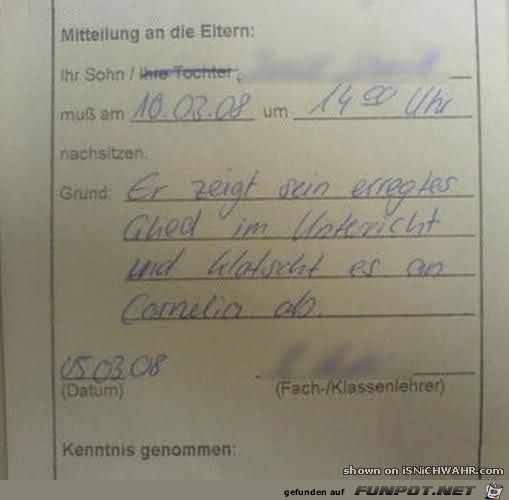 Mitteilung an die Eltern:
Ihr Sohn / Ihre Tochter,
muß am 10.03.08 um 14 00 Uhr
nachsitzen.
Grund: Er zeigt sein erregtes
Glied im Unterricht
und klatscht es an
Cornelia ab.
05.03.08
(Datum) (Fach-/Klassenlehrer)
Kenntnis genommen:
shown on iSNiCHWAHR.com
gefunden auf FUNPOT.NET